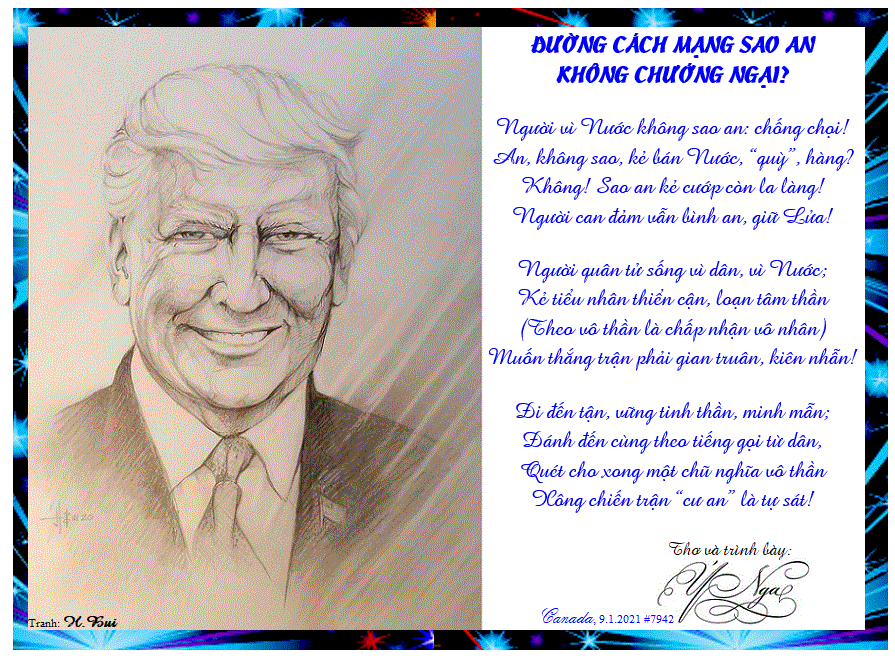 ĐƯỜNG CÁCH MẠNG SAO AN
KHÔNG CHƯỚNG NGẠI?
Người vì Nước không sao an: chống chọi!
An, không sao, kẻ bán Nước, “quỳ”, hàng?
Không! Sao an kẻ cướp còn la làng!
Người can đảm vẫn bình an, giữ Lửa!
Người quân tử sống vì dân, vì Nước;
Kẻ tiểu nhân thiển cận, loạn tâm thần
(Theo vô thần là chấp nhận vô nhân)
Muốn thắng trận phải gian truân, kiên nhẫn!
Đi đến tận, vững tinh thần, minh mẫn;
Đánh đến cùng theo tiếng gọi từ dân,
Quét cho xong một chữ nghĩa vô thần
Xông chiến trận “cư an” là tự sát!
Thơ và trình bày:
Ý Nga
Canada, 9.1.2021 #7942
Tranh: H. Bui